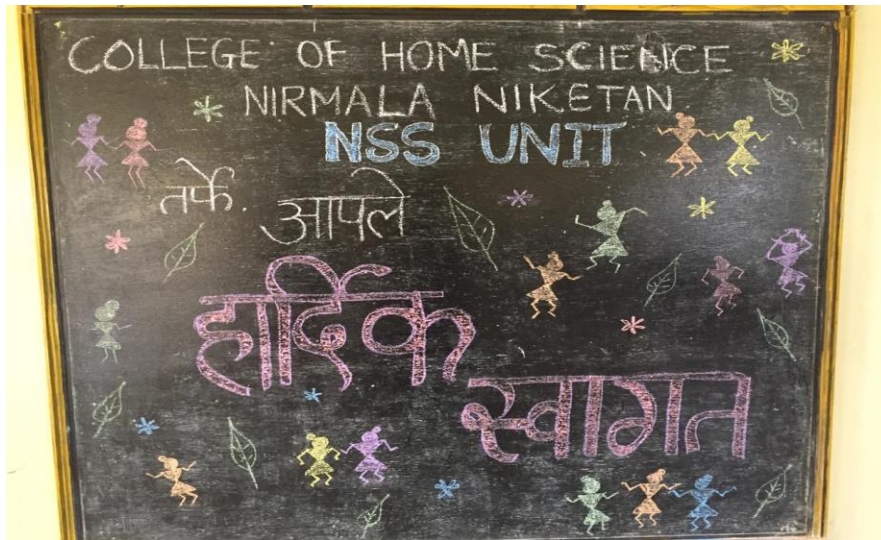 COLLEGE OF HOME SCIENCE
NIRMALA NIKETAN
NSS UNIT
तर्फे. आपले
हार्दिक
स्वागत